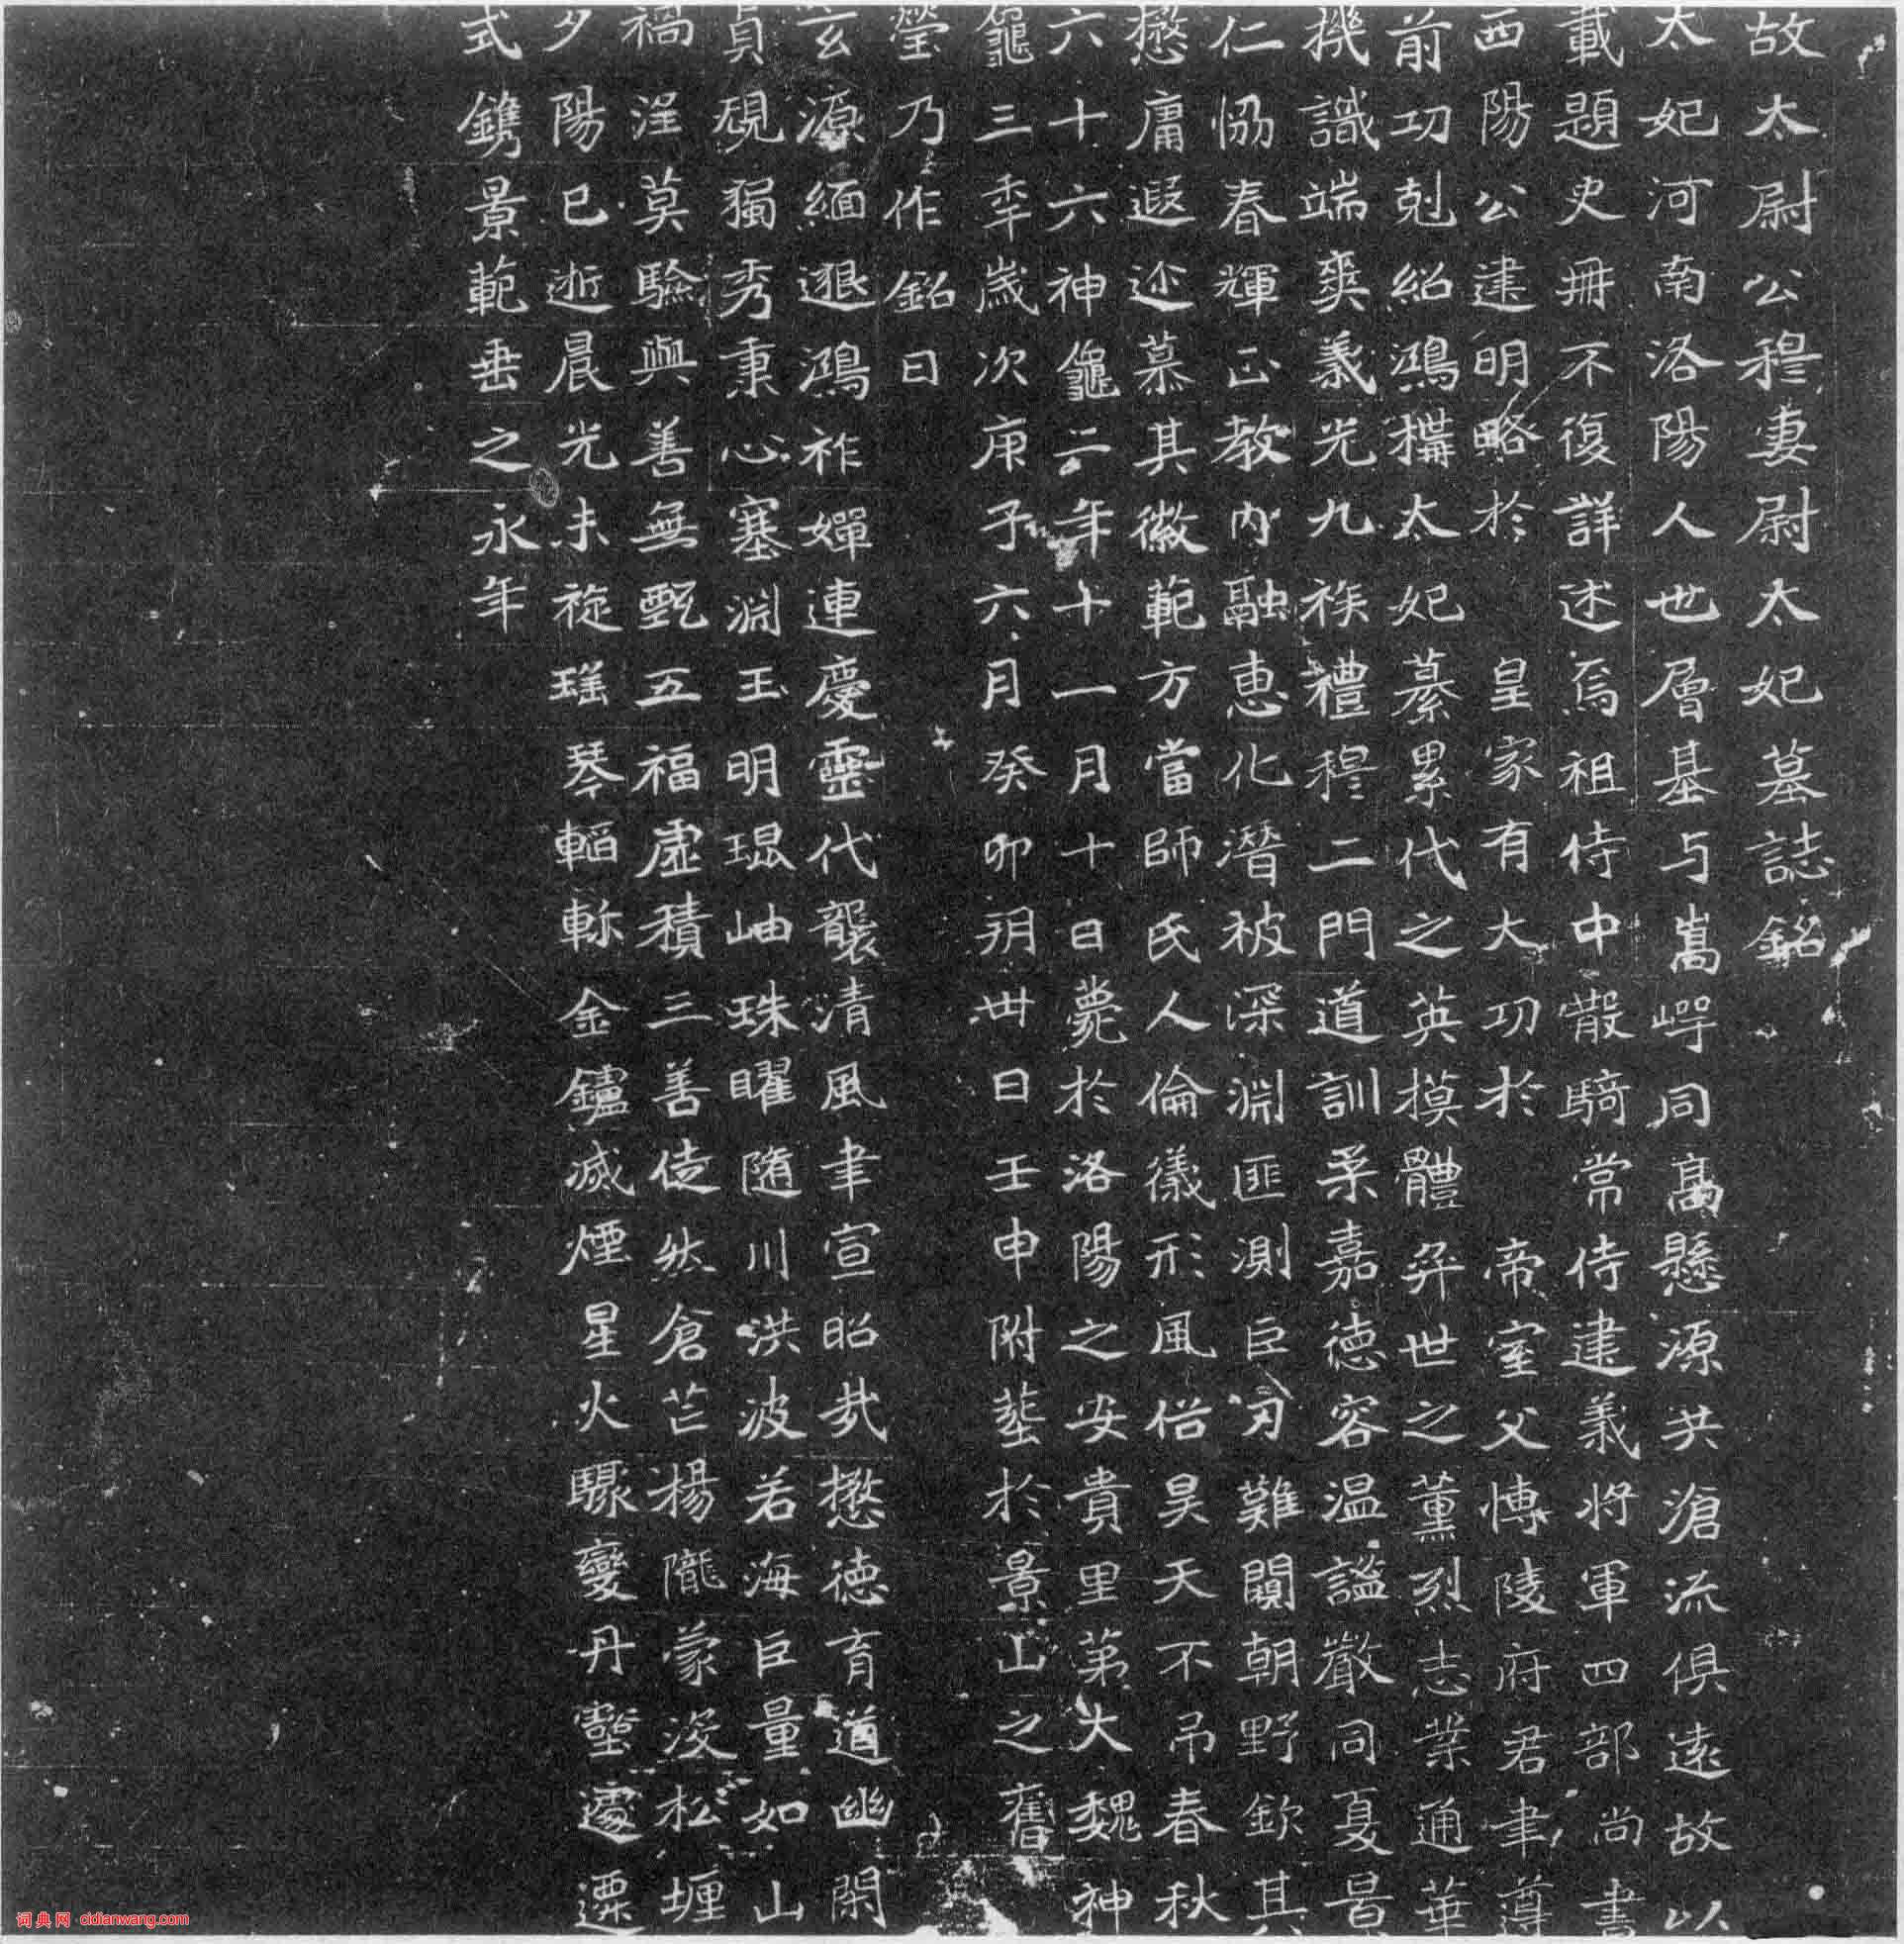 故太尉公穆妻尉太妃墓誌銘
太妃河南洛陽人也層基与嵩崿同高懸源共滄流俱遠故以
載題史冊不復詳述焉祖侍中散騎常侍建義將軍四部尚書
西陽公建明略於皇家有大功於帝室父博陵府君聿尊
前功剋紹鴻構太妃綦累代之英摸體弈世之薰烈志業通華
機識端爽義光九族禮穆二門道訓柔嘉德容温謐嚴同夏景
仁恊春輝正教內融恵化潛被深淵匪測巨仞難闚朝野欽其
懋庸遐迩慕其徽範方當師氏人倫儀形風俗昊天不弔春秋
六十六神龜二年十一月十日薨於洛陽之安貴里第大魏神
龜三秊歲次庚子六月癸卯玥丗日壬申附塟於景山之舊
瑩乃作銘曰
玄源緬邈鴻祚嬋連慶靈代襲清風聿宣昭哉懋德育道幽閑
貞硯獨秀秉心塞淵玉明琨岫珠曜隨川洪波若海巨量如山
禍淫莫驗與善無甄五福虛積三善徒然倉芒楊隴蒙浚松堰
夕陽已逝晨光未旋瑤琴韜軫金鑪滅煙星火驟變丹壑遽遷
式鐫景範垂之永年
词典网 cidianwang.com